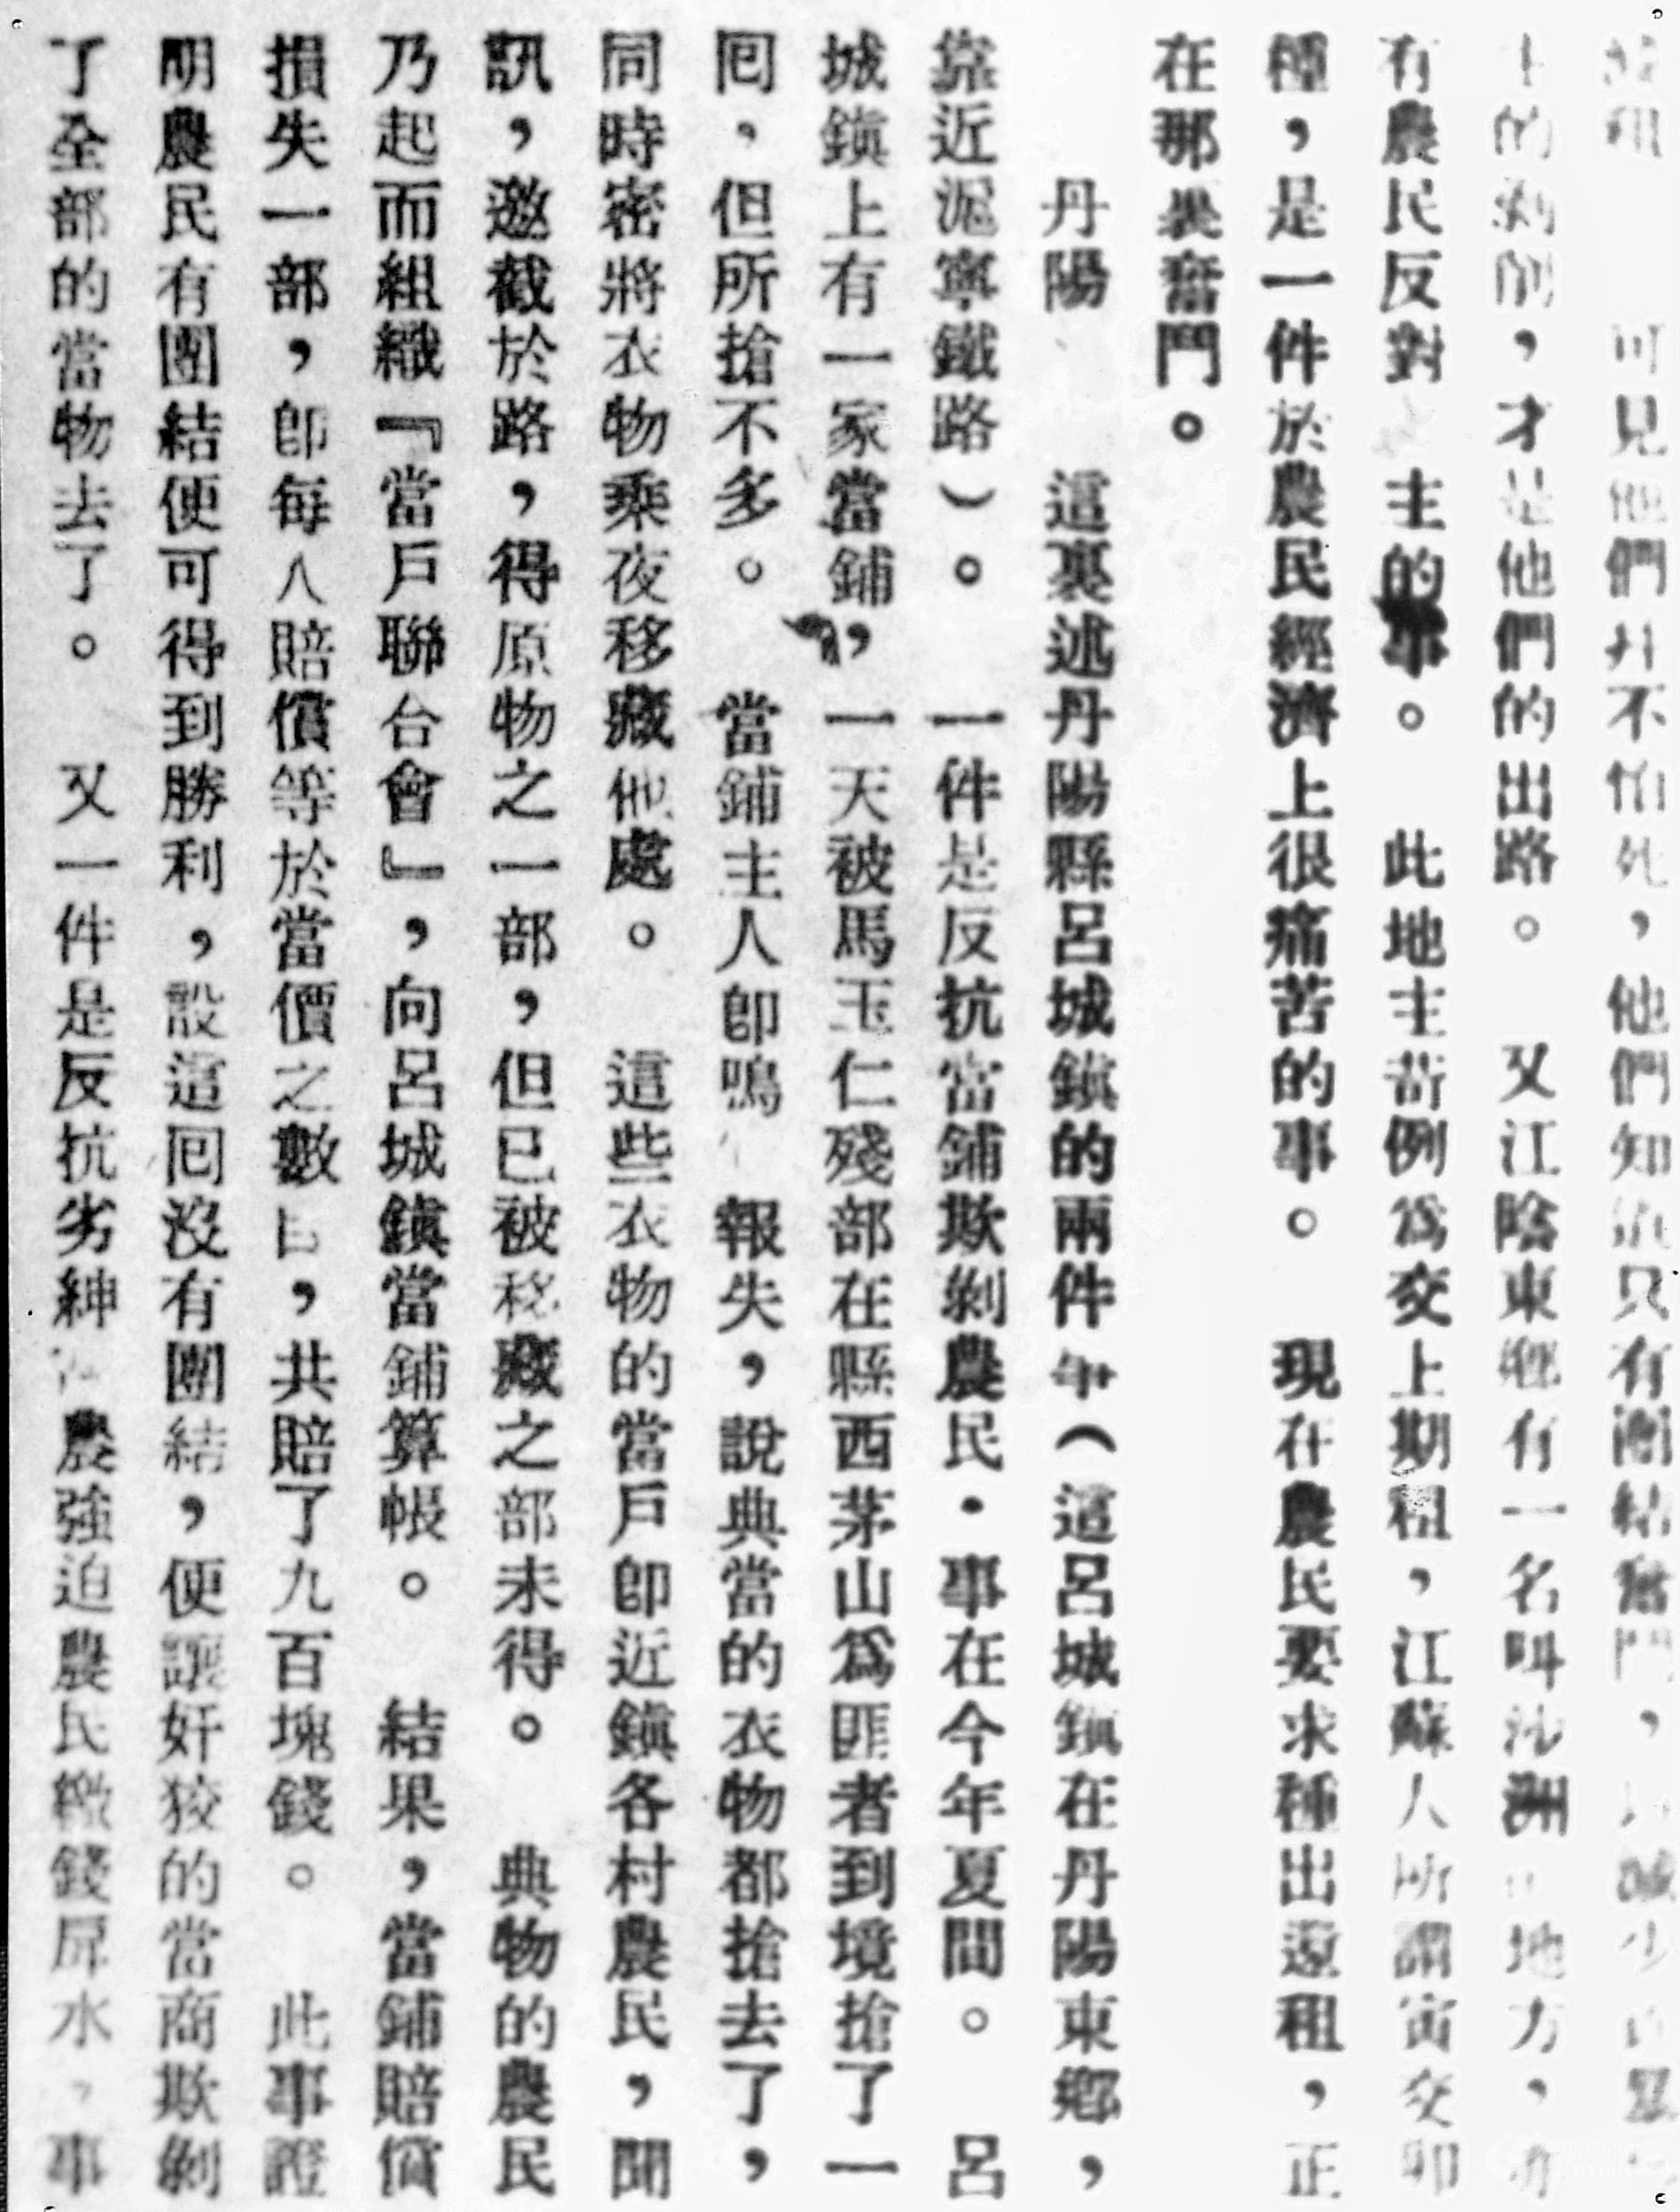 租 可見他們不怕死，他們知道只有團結奮鬥，減少
的剝削，才是他們的出路。又江陰東鄉有一名叫沙洲地方，亦
有農民反對主的事。此地主苛例爲交上期租，江蘇人所謂寅交卯
種，是一件於農民經濟上很痛苦的事。現在農民要求種出還租，正
在那裏奮鬥。
丹陽 這裏述丹陽縣呂城鎮的兩件事（這呂城鎮在丹陽東鄉，
靠近滬寧鐵路）。一件是反抗當鋪欺剝農民・事在今年夏間。呂
城鎮上有一家當鋪，一天被馬玉仁殘部在縣西茅山爲匪者到境搶了一
囘，但所搶不多。當鋪主人卽鳴 報失，說典當的衣物都搶去了，
同時密將衣物乘夜移藏他處。這些衣物的當戶卽近鎮各村農民，聞
訊，邀截於路，得原物之一部，但已被移藏之部未得。典物的農民
乃起而組織『當戶聯合會』，向呂城鎮當鋪算帳。結果，當鋪賠償
損失一部，卽每人賠償等於當價之數目，共賠了九百塊錢。此事證
明農民有團結便可得到勝利，設這囘沒有團結，便讓奸狡的當商欺剝
了全部的當物去了。又一件是反抗劣紳 農強迫農民繳錢戽水，事